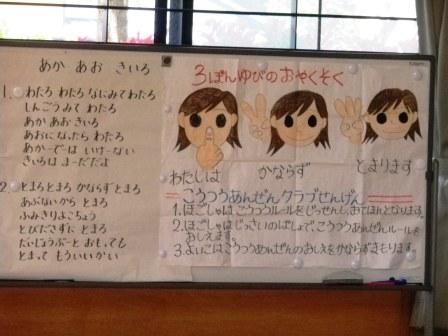 あか あお きいろ
1. わたろ わたろ なにみてわたろ
しんごうみて わたろ
あか あお きいろ
あおになったら わたろ
あかーでーは いけーない
きいろは まーだだよ
2 とまろとまろ かならずとまろ
あぶないから とまろ
ふみきりよこちょう
とびださずに とまろ
だいじょうぶーと おもっても
とまって もういいかい
3ぼんゆびのおやくそく
わたしは かならず とまります
こうつうあんぜんクラブせんげん
1.ほごしゃはこうつうルールをじっせんし、おてほんとなります。
2.ほごしゃはじっさいのばしょで、こうつうあんぜんルールを
おしえます。
3.よいこはこうつうあんぜんのおしえをかならずまもります。